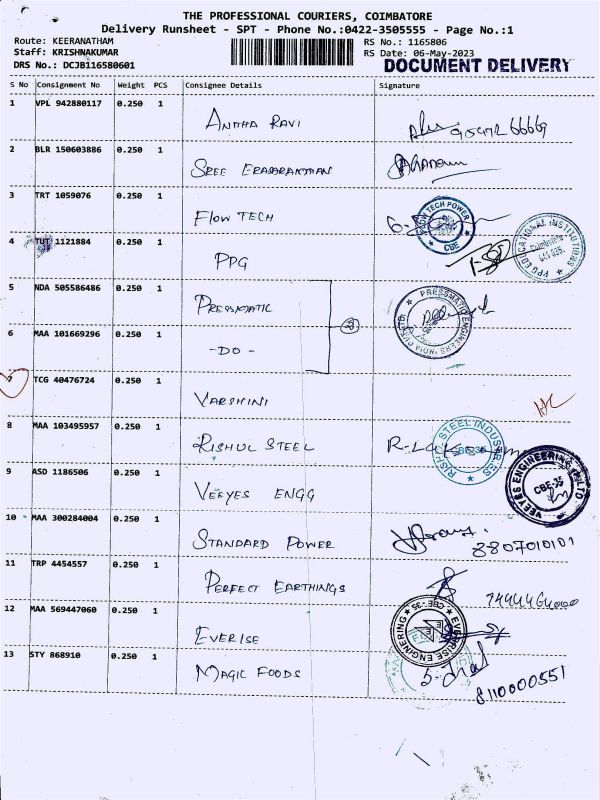 THE PROFESSIONAL COURIERS, COIMBATORE
Delivery Runsheet - SPT - Phone No.:0422-3505555 - Page No.:1
Route: KEERANATHAM RS No.: 1165806
Staff: KRISHNAKUMAR RS Date: 06-May-2023
DRS No.: DCJB116580601 DOCUMENT DELIVERY
S No Consignment No Weight PCS Consignee Details Signature
1 VPL 942880117 0.250 1
ANTHA RAVI
2 BLR 150603886 0.250 1
SREE
3 TRT 1059076 0.250 1
FLOW TECH
FLOW TECH POWER CBE
4 TUT 1121884 0.250 1
PPG
PPG EDUCATIONAL INSTITUTIONS
5 NDA 505586486 0.250 1
PRESSMATIC
PRESSMATIC ENGINEERS INDIA
6 MAA 101669296 0.250 1
-DO-
7 TCG 40476724 0.250 1
VARSHINI
8 MAA 103495957 0.250 1
RISHUL STEEL
STEEL INDUSTRIES
9 ASD 1186506 0.250 1
VEEYES ENGG
VEEYES ENGINEERING LTD CBE-35
10 MAA 300284004 0.250 1
STANDARD POWER
8807010101
11 TRP 4454557 0.250 1
PERFECT EARTHINGS
12 MAA 569447060 0.250 1
EVERISE
EVERISE ENGINEERING CBE-35
13 STY 868910 0.250 1
MAGIC FOODS
8110000551